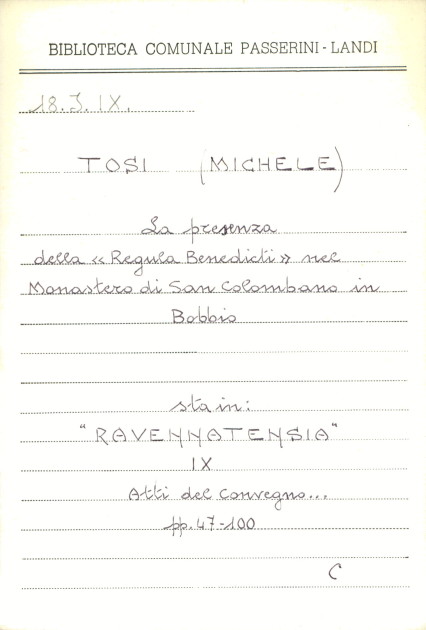 BIBLIOTECA COMUNALE PASSERINI - LANDI
18.J.IX.
TOSI (MICHELE)
La presenza
della « Regula Benedicti » nel
Monastero di San Colombano in
Bobbio
sta in:
"RAVENNATENSIA"
IX
Atti del Convegno...
pp. 47-100
C